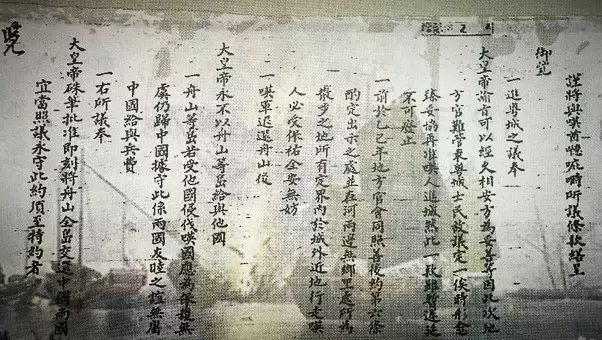 謹將與𠸄酋德呢時所議條款繕呈
御覽
一進粵城之議奉
大皇帝諭旨可以經久相安方為妥善等因此次地
方官難管束粵城士民故議定一俟時形愈
臻妥協再准𠸄人進城然此一款雖暫遲延
不可廢止
一前於乙巳年地方官會同照善後約第六條
酌定出示之處並在河兩邊無鄉里處所為
散步之地所有定界內於城外近地行走𠸄
人必受保祐全安無妨
一𠸄軍退還舟山後
大皇帝永不以舟山等島給與他國
一舟山等島若受他國侵伐𠸄國應為保護無
虞仍歸中國據守此係兩國友睦之誼無庸
中國給與兵費
一右所議奉
大皇帝硃筆批准即刻將舟山全島交還中國兩國
宜當照議永守此約須至特約者
覽